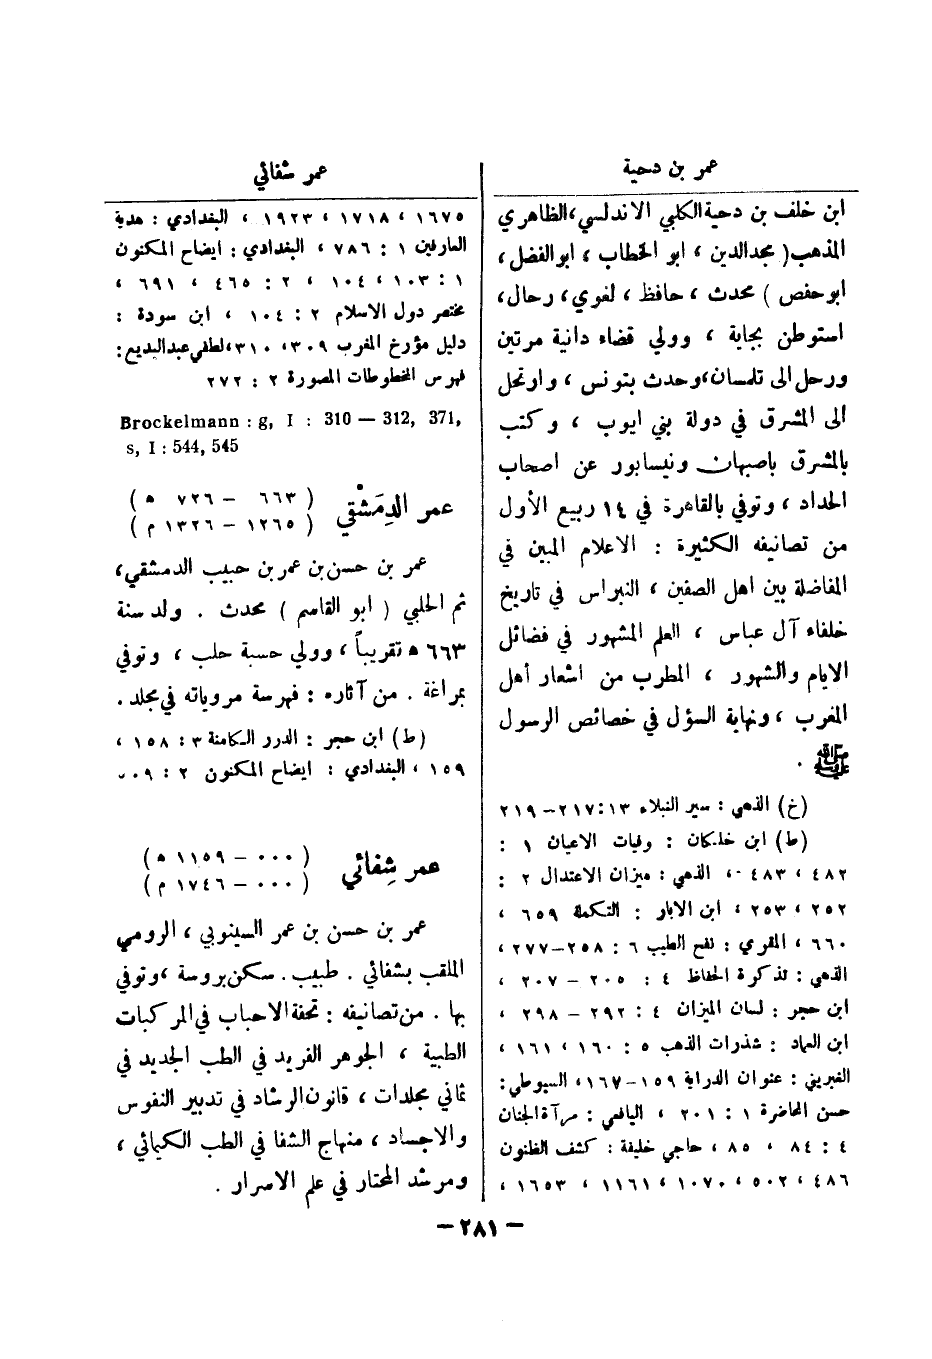 عمر بن دحية
ابن خلف بن دحية الكلبي الاندلسي، الظاهري
المذهب (مجد الدين ، ابو الخطاب ، ابو الفضل ،
ابو حفص ) محدث ، حافظ ، لغوي ، رحال،
استوطن بجاية ، وولي قضاء دانية مرتين
ورحل الى تلمسان، وحدث بتونس ، وارتحل
الى المشرق في دولة بني ايوب ، وكتب
بالمشرق باصبهان ونيسابور عن اصحاب
الحداد ، وتوفي بالقاهرة في ١٤ ربيع الأول
من تصانيفه الكثيرة : الاعلام المبين في
المفاضلة بين اهل الصفين ، النبراس في تاريخ
خلفاء آل عباس ، العلم المشهور في فضائل
الايام والشهور ، المطرب من اشعار أهل
المغرب ، ونهاية السؤل في خصائص الرسول
ﷺ .
(خ) الذهبي : سير النبلاء ١٣ : ٢١٧ – ٢١٩
(ط) ابن خلكان : وفيات الاعيان ١ :
٤٨٢ ، ٤٨٣ ، الذهبي : ميزان الاعتدال ٢ :
٢٥٢ ، ٢٥٣ ، ابن الابار : التكملة ٦٥٩ ،
٦٦٠ ، المقري : نفح الطيب ٦ : ٢٥٨ – ٢٧٧ ،
الذهبي : تذكرة الحفاظ ٤ : ٢٠٥ – ٢٠٧ ،
ابن حجر : لسان الميزان ٤ : ٢٩٢ – ٢٩٨ ،
ابن العماد : شذرات الذهب ٥ : ١٦٠ ، ١٦١ ،
الغبريني : عنوان الدراية ١٥٩ – ١٦٧ ، السيوطي :
حسن المحاضرة ١ : ٢٠١ ، اليافعي : مرآة الجنان
٤ : ٨٤ ، ٨٥ ، حاجي خليفة : كشف الظنون
٤٨٦ ، ٥٠٢ ، ١٠٧٠ ، ١١٦١ ، ١٦٥٣ ،
عمر شفائي
١٦٧٥ ، ١٧١٨ ، ١٩٢٣ ، البغدادي : هدية
العارفين ١ : ٧٨٦ ، البغدادي : ايضاح المكنون
١ : ١٠٣ ، ١٠٤ ، ٢ : ٤٦٥ ، ٦٩١ ،
مختصر دول الاسلام ٢ : ١٠٤ ، ابن سودة :
دليل مؤرخ المغرب ٣٠٩، ٣١٠، لطفي عبد البديع :
فهرس المخطوطات المصورة ٢ : ٢٧٢
Brockelmann : g, I : 310 — 312, 371,
s, I : 544, 545
عمر الدِمَشْقي ( ٦٦٣ – ٧٢٦ ھ )
( ١٢٦٥ – ١٣٢٦ م )
عمر بن حسن بن عمر بن حبيب الدمشقي ،
ثم الحلبي ( ابو القاسم ) محدث . ولد سنة
٦٦٣ ھ تقريباً ، وولي حسبة حلب ، وتوفي
بمراغة . من آثاره : فهرسة مروياته في مجلد .
(ط) ابن حجر : الدرر الكامنة ٣ : ١٥٨ ،
١٥٩ ، البغدادي : ايضاح المكنون ٢ :
عمر شِفائي ( ٠٠٠ – ١١٥٩ ھ )
( ٠٠٠ – ١٧٤٦ م )
عمر بن حسن بن عمر السينوبي ، الرومي
الملقب بشفائي . طبيب . سكن بروسة ، وتوفي
بها . من تصانيفه : تحفة الاحباب في المركبات
الطبية ، الجوهر الفريد في الطب الجديد في
ثماني مجلدات ، قانون الرشاد في تدبير النفوس
والاجساد ، منهاج الشفا في الطب الكيمائي ،
ومرشد المختار في علم الاسرار .
– ٢٨١ –